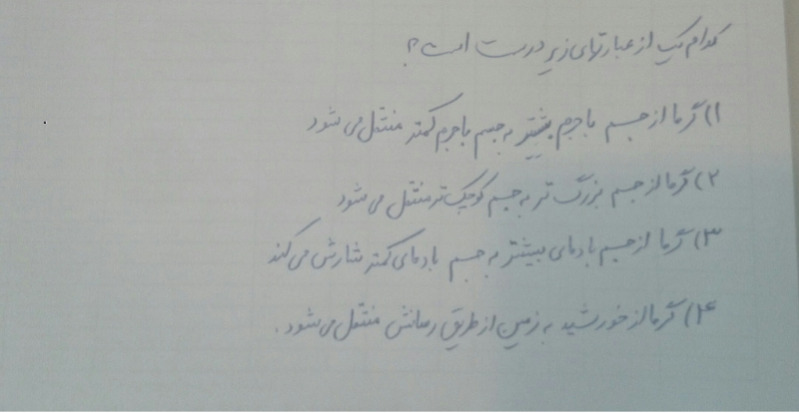 کدام یک از عبارتهای زیر درست است؟
۱) گرما از جسم با جرم بیشتر به جسم با جرم کمتر منتقل می شود
۲) گرما از جسم بزرگ تر به جسم کوچک تر منتقل می شود
۳) گرما از جسم با دمای بیشتر به جسم با دمای کمتر شارش می کند
۴) گرما از خورشید به زمین از طریق رسانش منتقل می شود.